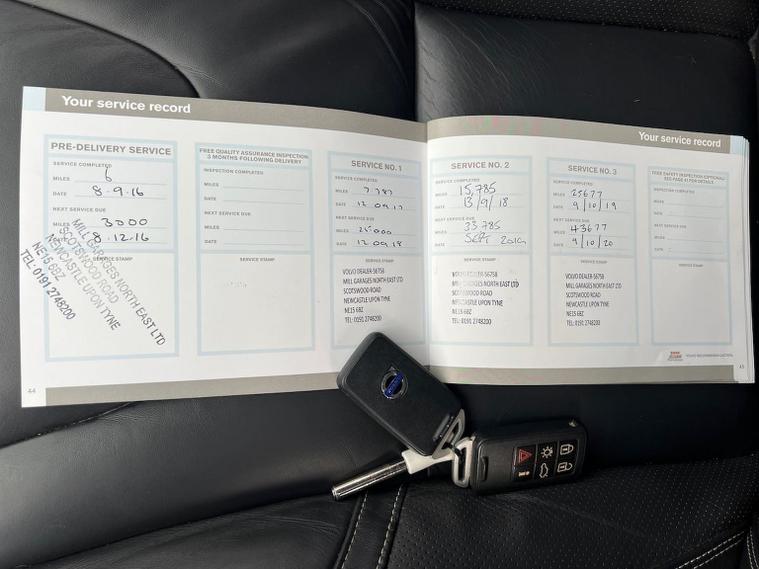 Your service record
PRE-DELIVERY SERVICE
SERVICE COMPLETED
MILES 6
DATE 8.9.16
NEXT SERVICE DUE
MILES 3000
DATE 8.12.16
SERVICE STAMP
MILL GARAGES NORTH EAST LTD
SCOTSWOOD ROAD
NEWCASTLE UPON TYNE
NE15 6BZ
TEL: 0191 2748200
44
FREE QUALITY ASSURANCE INSPECTION
3 MONTHS FOLLOWING DELIVERY
INSPECTION COMPLETED
MILES
DATE
NEXT SERVICE DUE
MILES
DATE
SERVICE STAMP
SERVICE NO. 1
SERVICE COMPLETED
MILES 7787
DATE 12 09 17
NEXT SERVICE DUE
MILES 25000
DATE 12 09 18
SERVICE STAMP
VOLVO DEALER-56758
MILL GARAGES NORTH EAST LTD
SCOTSWOOD ROAD
NEWCASTLE UPON TYNE
NE15 6BZ
TEL: 0191 2748200
Your service record
SERVICE NO. 2
SERVICE COMPLETED
MILES 15,785
DATE 13/9/18
NEXT SERVICE DUE
MILES 33785
DATE SEPT 2019
SERVICE STAMP
VOLVO DEALER-56758
MILL GARAGES NORTH EAST LTD
SCOTSWOOD ROAD
NEWCASTLE UPON TYNE
NE15 6BZ
TEL: 0191 2748200
SERVICE NO. 3
SERVICE COMPLETED
MILES 25677
DATE 9/10/19
NEXT SERVICE DUE
MILES 43677
DATE 9/10/20
SERVICE STAMP
VOLVO DEALER-56758
MILL GARAGES NORTH EAST LTD
SCOTSWOOD ROAD
NEWCASTLE UPON TYNE
NE15 6BZ
TEL: 0191 2748200
FREE SAFETY INSPECTION (OPTIONAL)
SEE PAGE 41 FOR DETAILS
INSPECTION COMPLETED
MILES
DATE
NEXT SERVICE DUE
MILES
DATE
SERVICE STAMP
VOLVO RECOMMENDS CASTROL
45